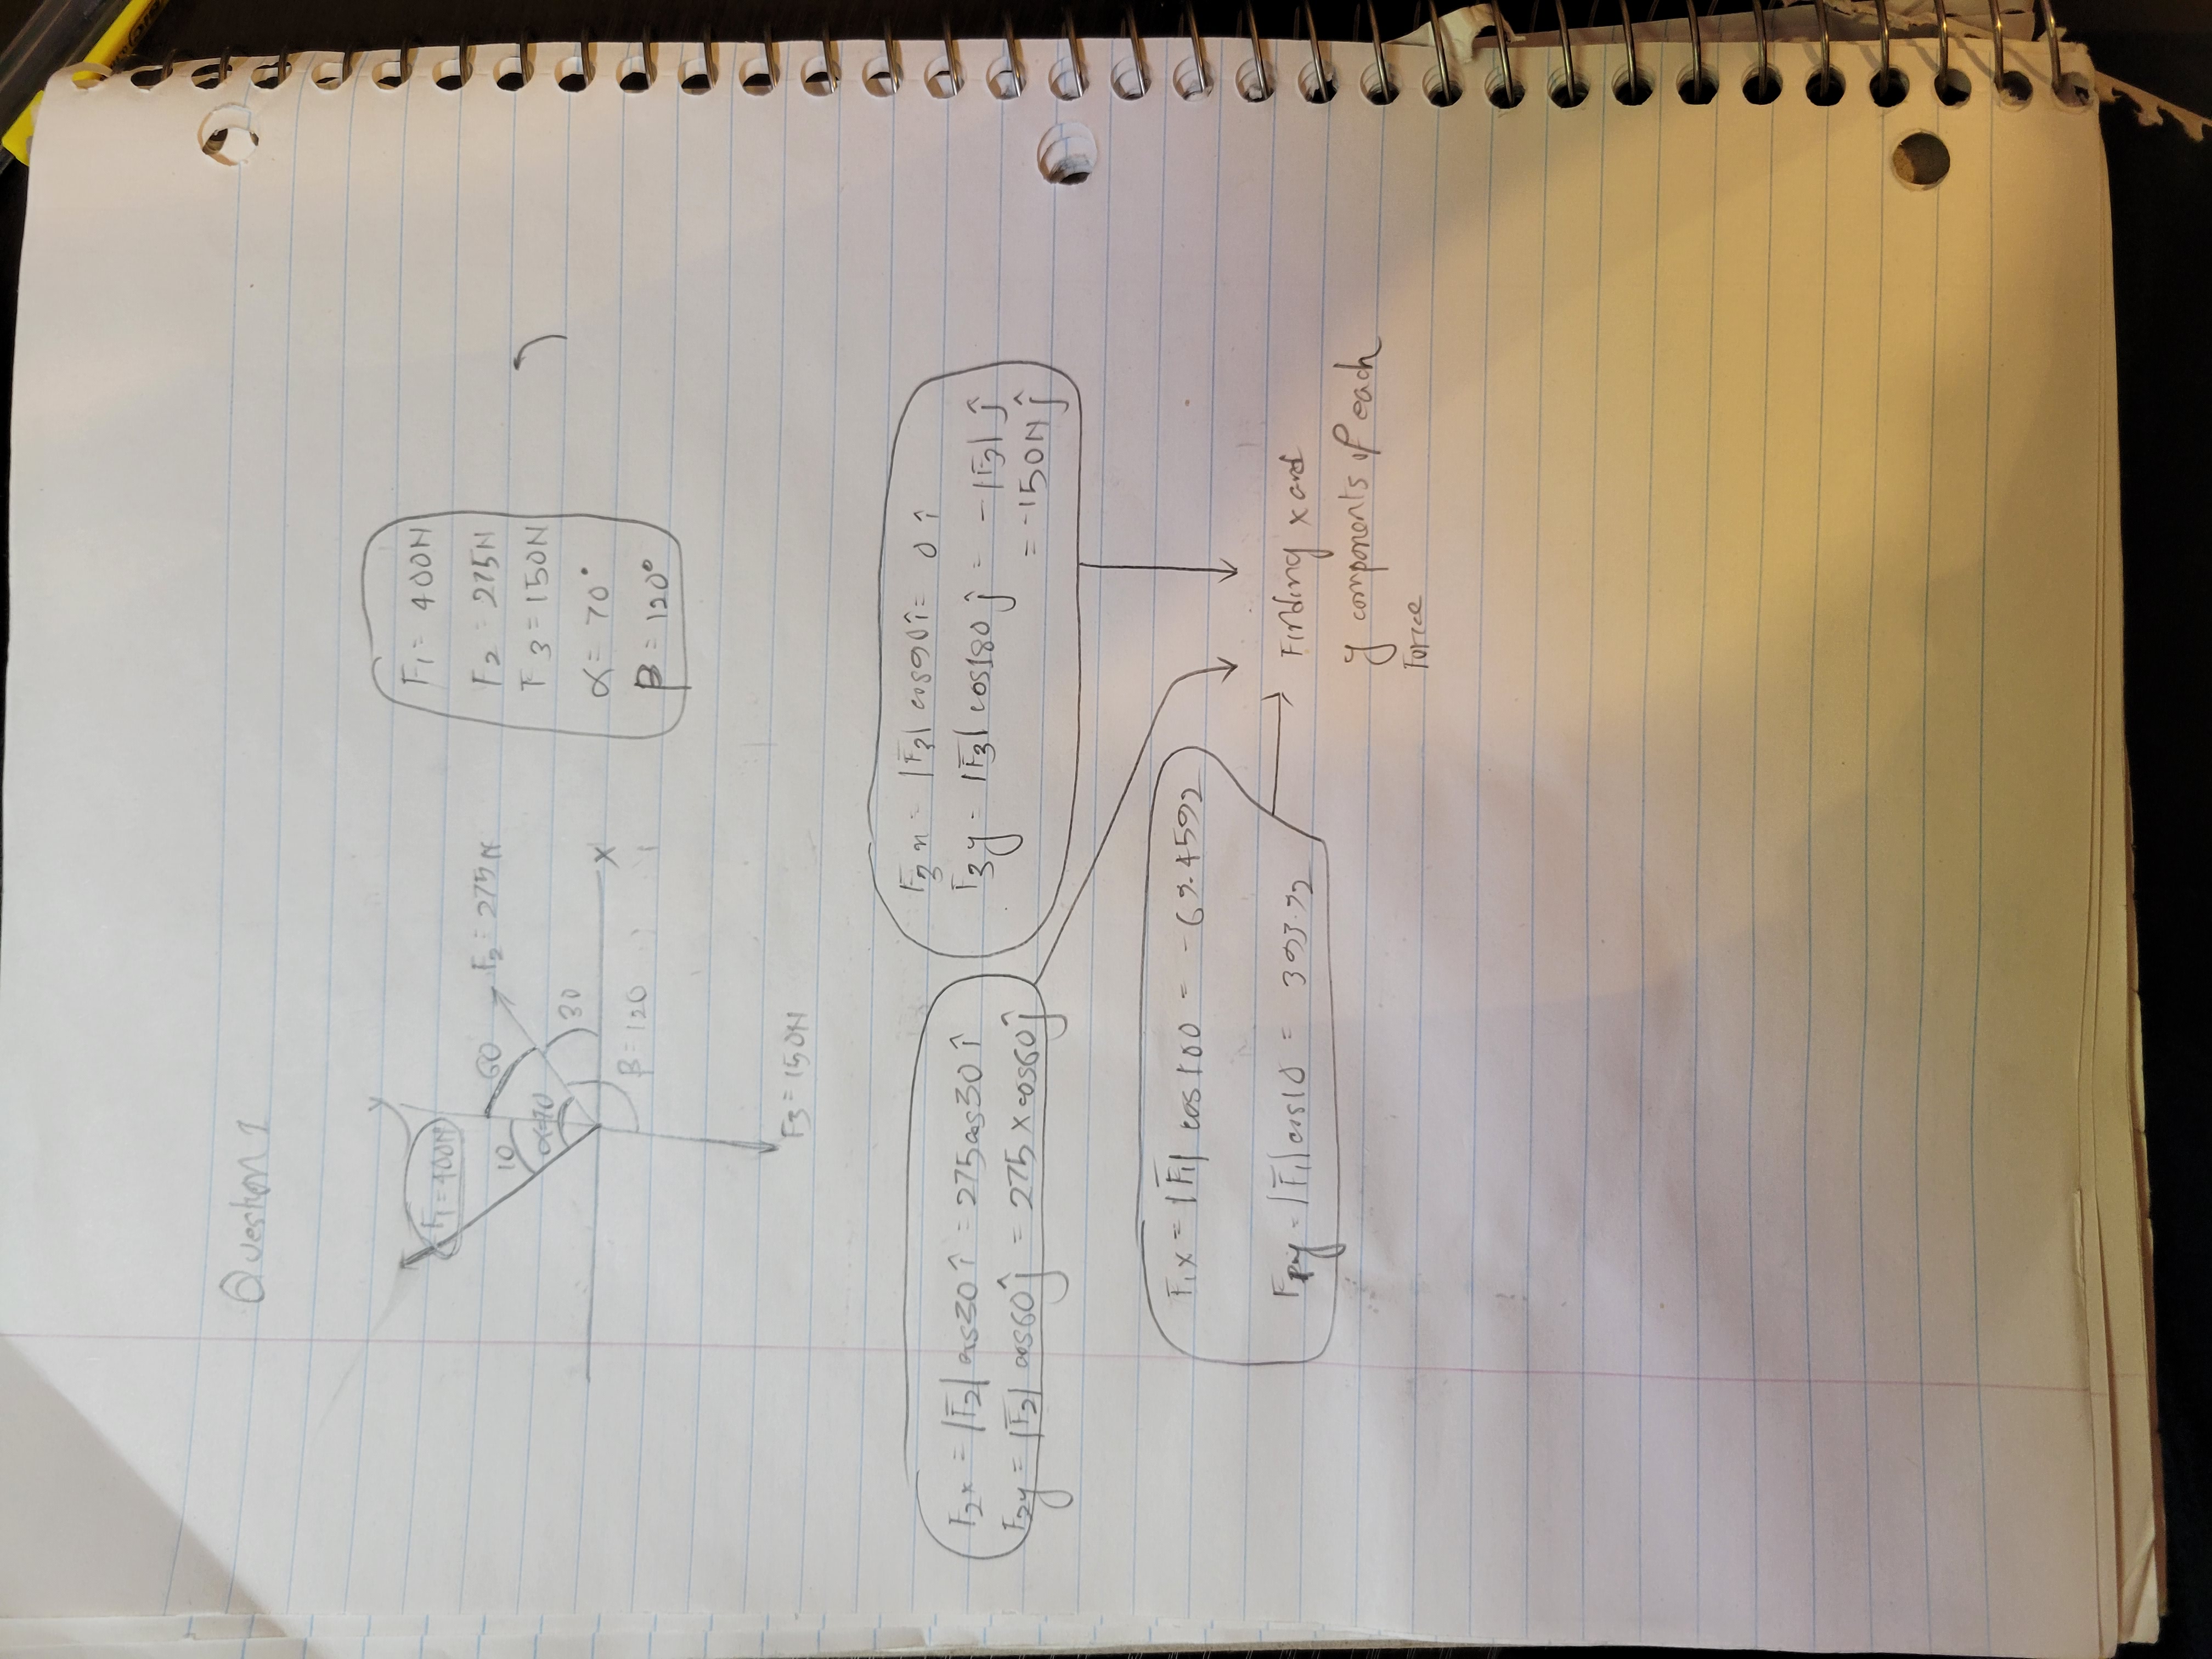 Question 1
y
F₁ = 400N
10
60
F₂ = 275N
α=70
30
x
β = 120
F3 = 150N
F₁ = 400N
F₂ = 275N
F3 = 150N
α = 70°
β = 120°
F₂x = |F̄₂| cos30 î = 275cos30 î
F₂y = |F̄₂| cos60 ĵ = 275 x cos60 ĵ
F₃x = |F̄₃| cos90 î = 0 î
F₃y = |F̄₃| cos180 ĵ = -|F̄₃| ĵ
= -150N ĵ
F₁x = |F̄₁| cos100 = -69.4592
F₁y = |F̄₁| cos10 = 393.92
Finding x and
y components of each
Force